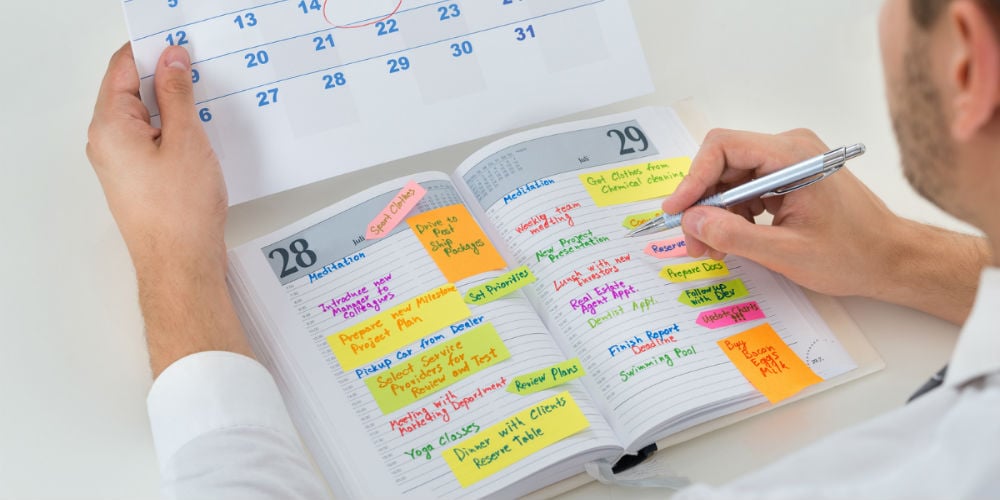 5
14
12
13
22
23
9
20
21
30
31
6
27
28
29
28
Juli
Sport Clothes
Meditation
Drive to
Post
Ship
Packages
Introduce new
Manager to
colleagues
Set Priorities
Prepare new Milestone
Project Plan
Pickup Car from Dealer
Select Service
Providers for
Review and Test
Review Plans
Meeting with
Marketing Department
Yoga Classes
Dinner with Clients
Reserve Table
29
Juli
Meditation
Get Clothes from
Chemical cleaning
Weekly team
meeting
New Project
Presentation
Reserve
Lunch with new
Investors
Prepare Docs
Real Estate
Agent Appt.
Follow up
with Dev
Dentist Appt.
Update Charts
Finish Report
Deadline
Swimming Pool
Buy
Bacon
Eggs
Milk